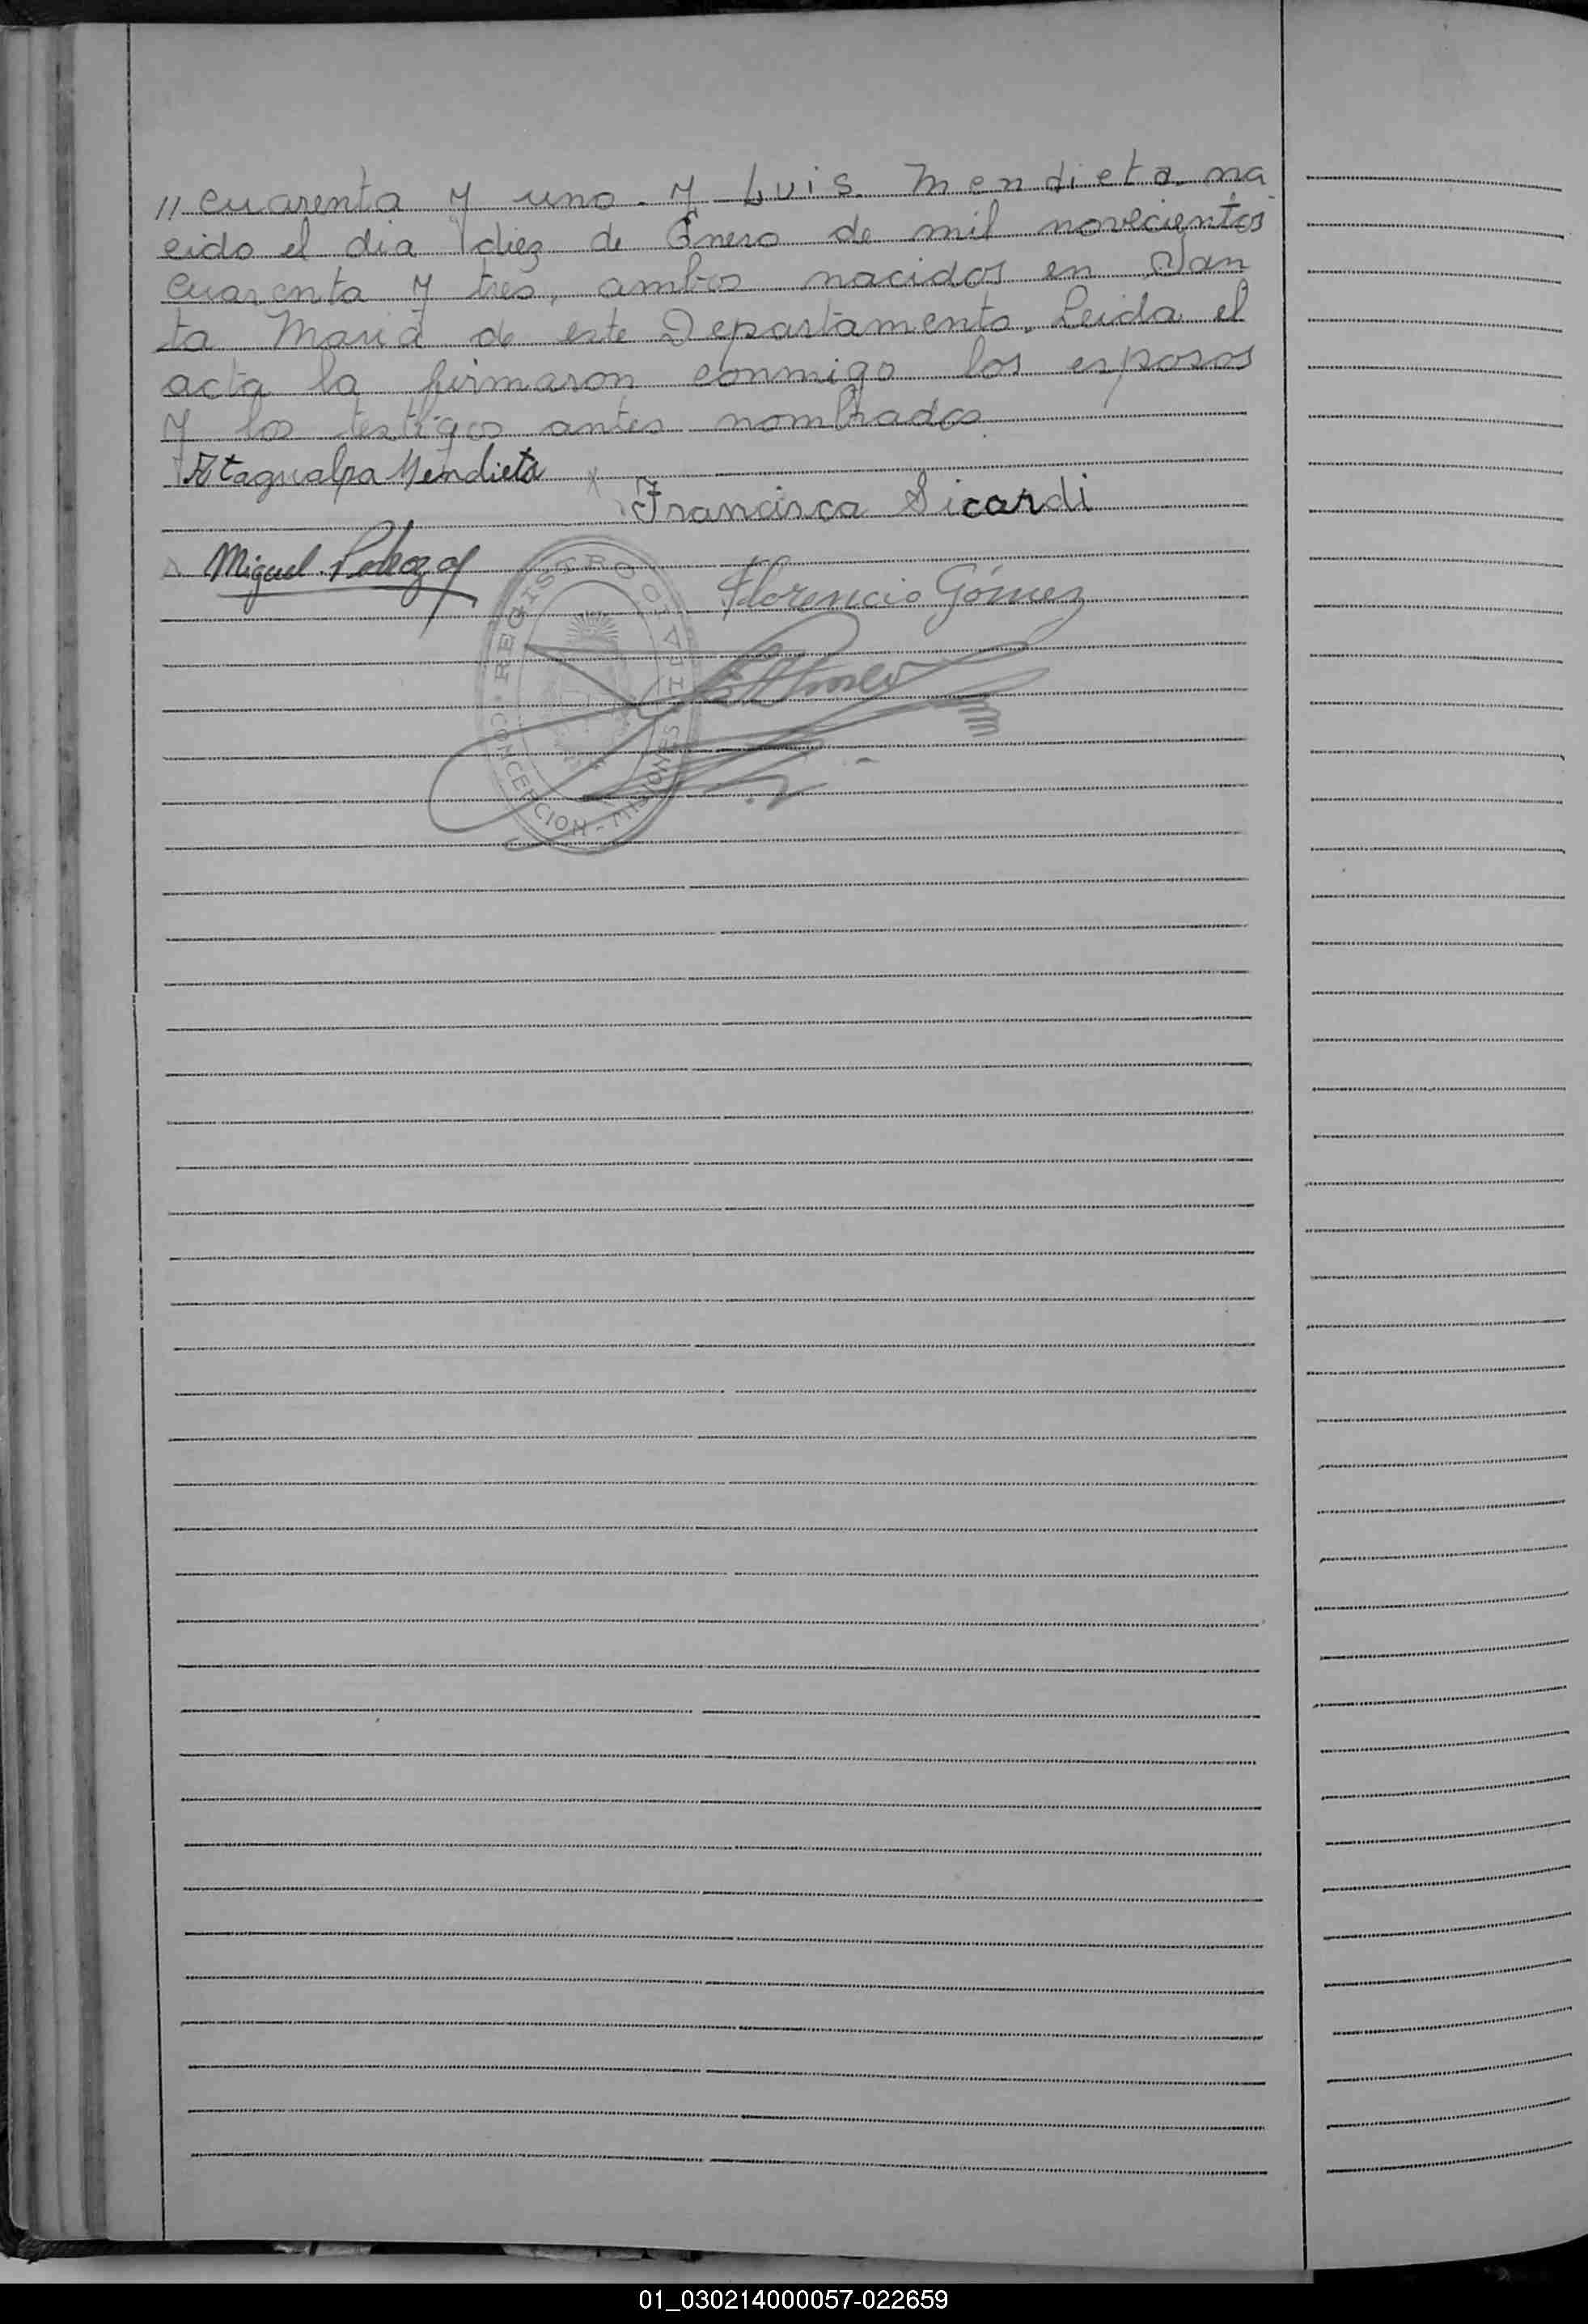 // cuarenta y uno. y Luis Mendieta na
cido el dia diez de Enero de mil novecientos
cuarenta y tres, ambos nacidos en San
ta Maria de este Departamento. Leida el
acta la firmaron conmigo los esposos
y los testigos antes nombrados
Atagualpa Mendieta
Francisca Sicardi
Miguel
Florencio Gómez
REGISTRO CIVIL
CONCEPCION - MISIONES
01_030214000057-022659